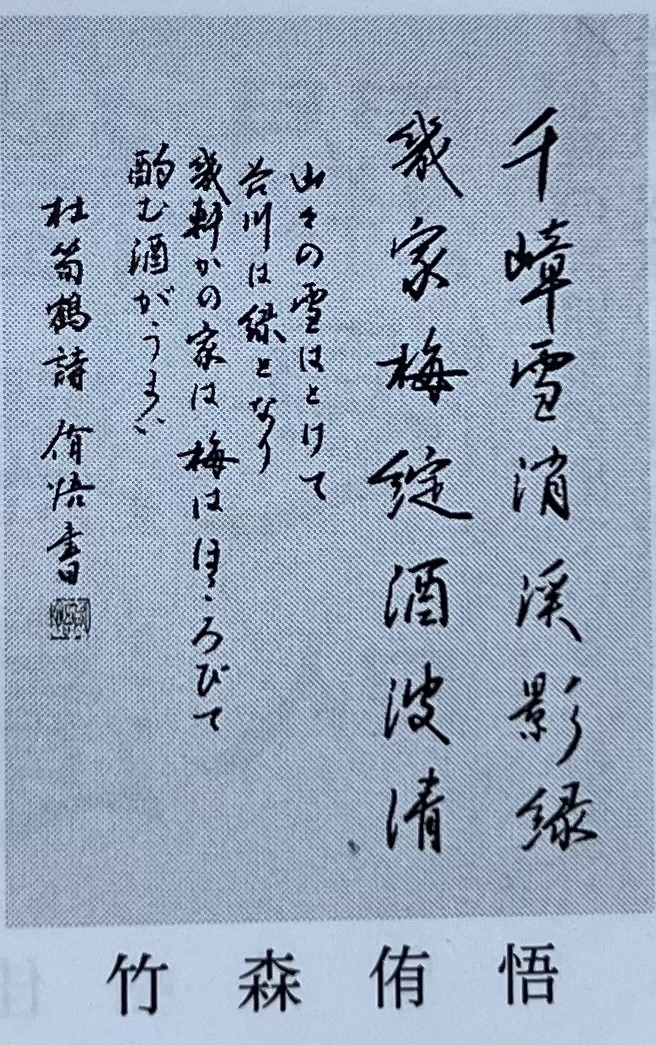 千嶂雪消渓影緑
幾家梅綻酒波清
山々の雪はとけて
谷川は緑となり
幾軒かの家は梅はほころびて
酌む酒がうまい
杜荀鶴詩 侑悟書
竹森侑悟